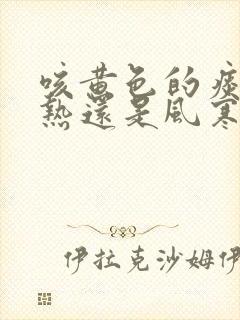 咳黃色的痰
熱還是風寒
伊拉克沙姆伊